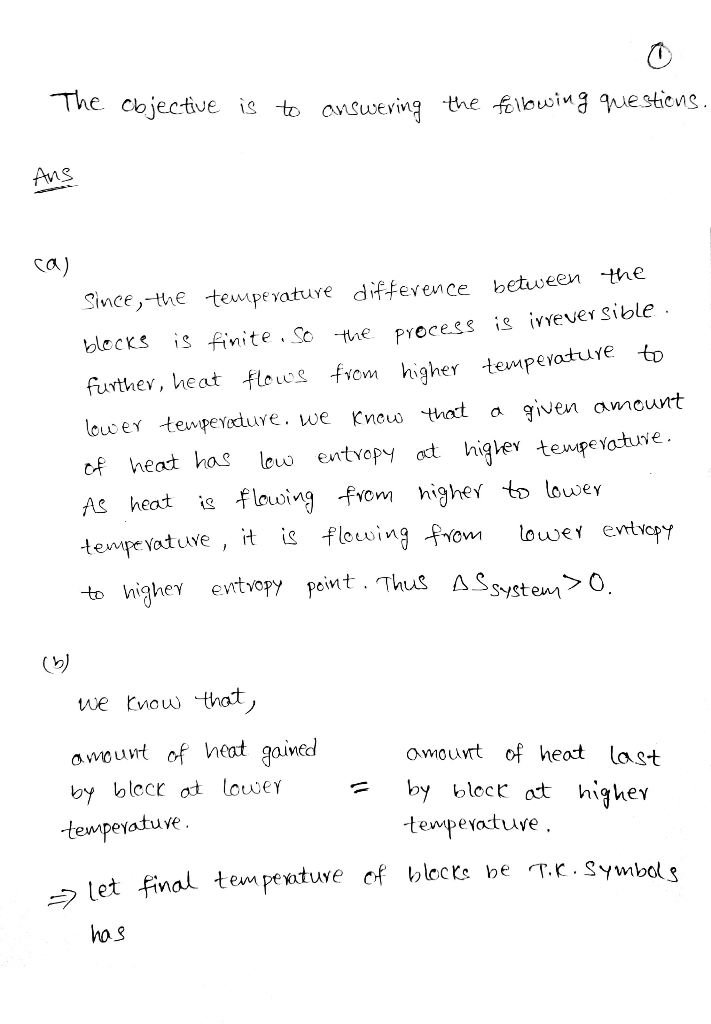 ①
The objective is to answering the following questions.
Ans
(a)
Since, the temperature difference between the
blocks is finite. So the process is irreversible.
further, heat flows from higher temperature to
lower temperature. we know that a given amount
of heat has low entropy at higher temperature.
As heat is flowing from higher to lower
temperature, it is flowing from lower entropy
to higher entropy point. Thus ΔSsystem > 0.
(b)
we know that,
amount of heat gained amount of heat last
by block at lower = by block at higher
temperature. temperature.
⇒ let final temperature of blocks be T.K. Symbols
has